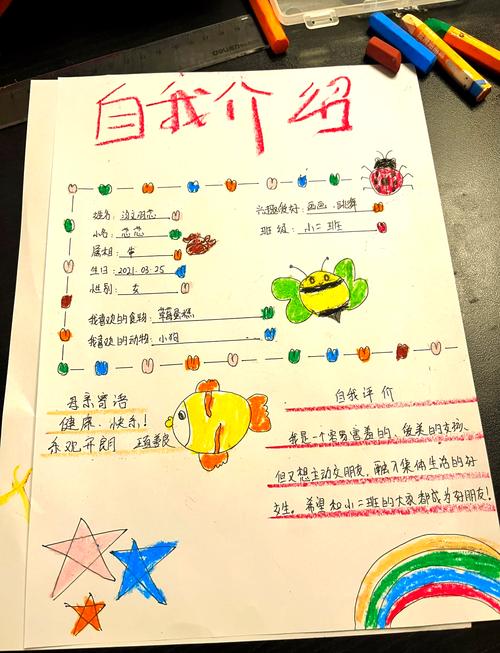 deli
自我介绍
姓名: 汝文羽芯
兴趣爱好: 画画、跳舞
小名: 芯芯
班级: 小二班
属相: 牛
生日: 2021.03.25
性别: 女
我喜欢的食物: 草莓蛋糕
我喜欢的动物: 小狗
母亲寄语
健康、快乐!
乐观开朗 正直善良
自我评价
我是一个容易害羞的、爱美的女孩、
但又想主动交朋友,融入集体生活的好
女生。希望和小二班的大家都成为好朋友!